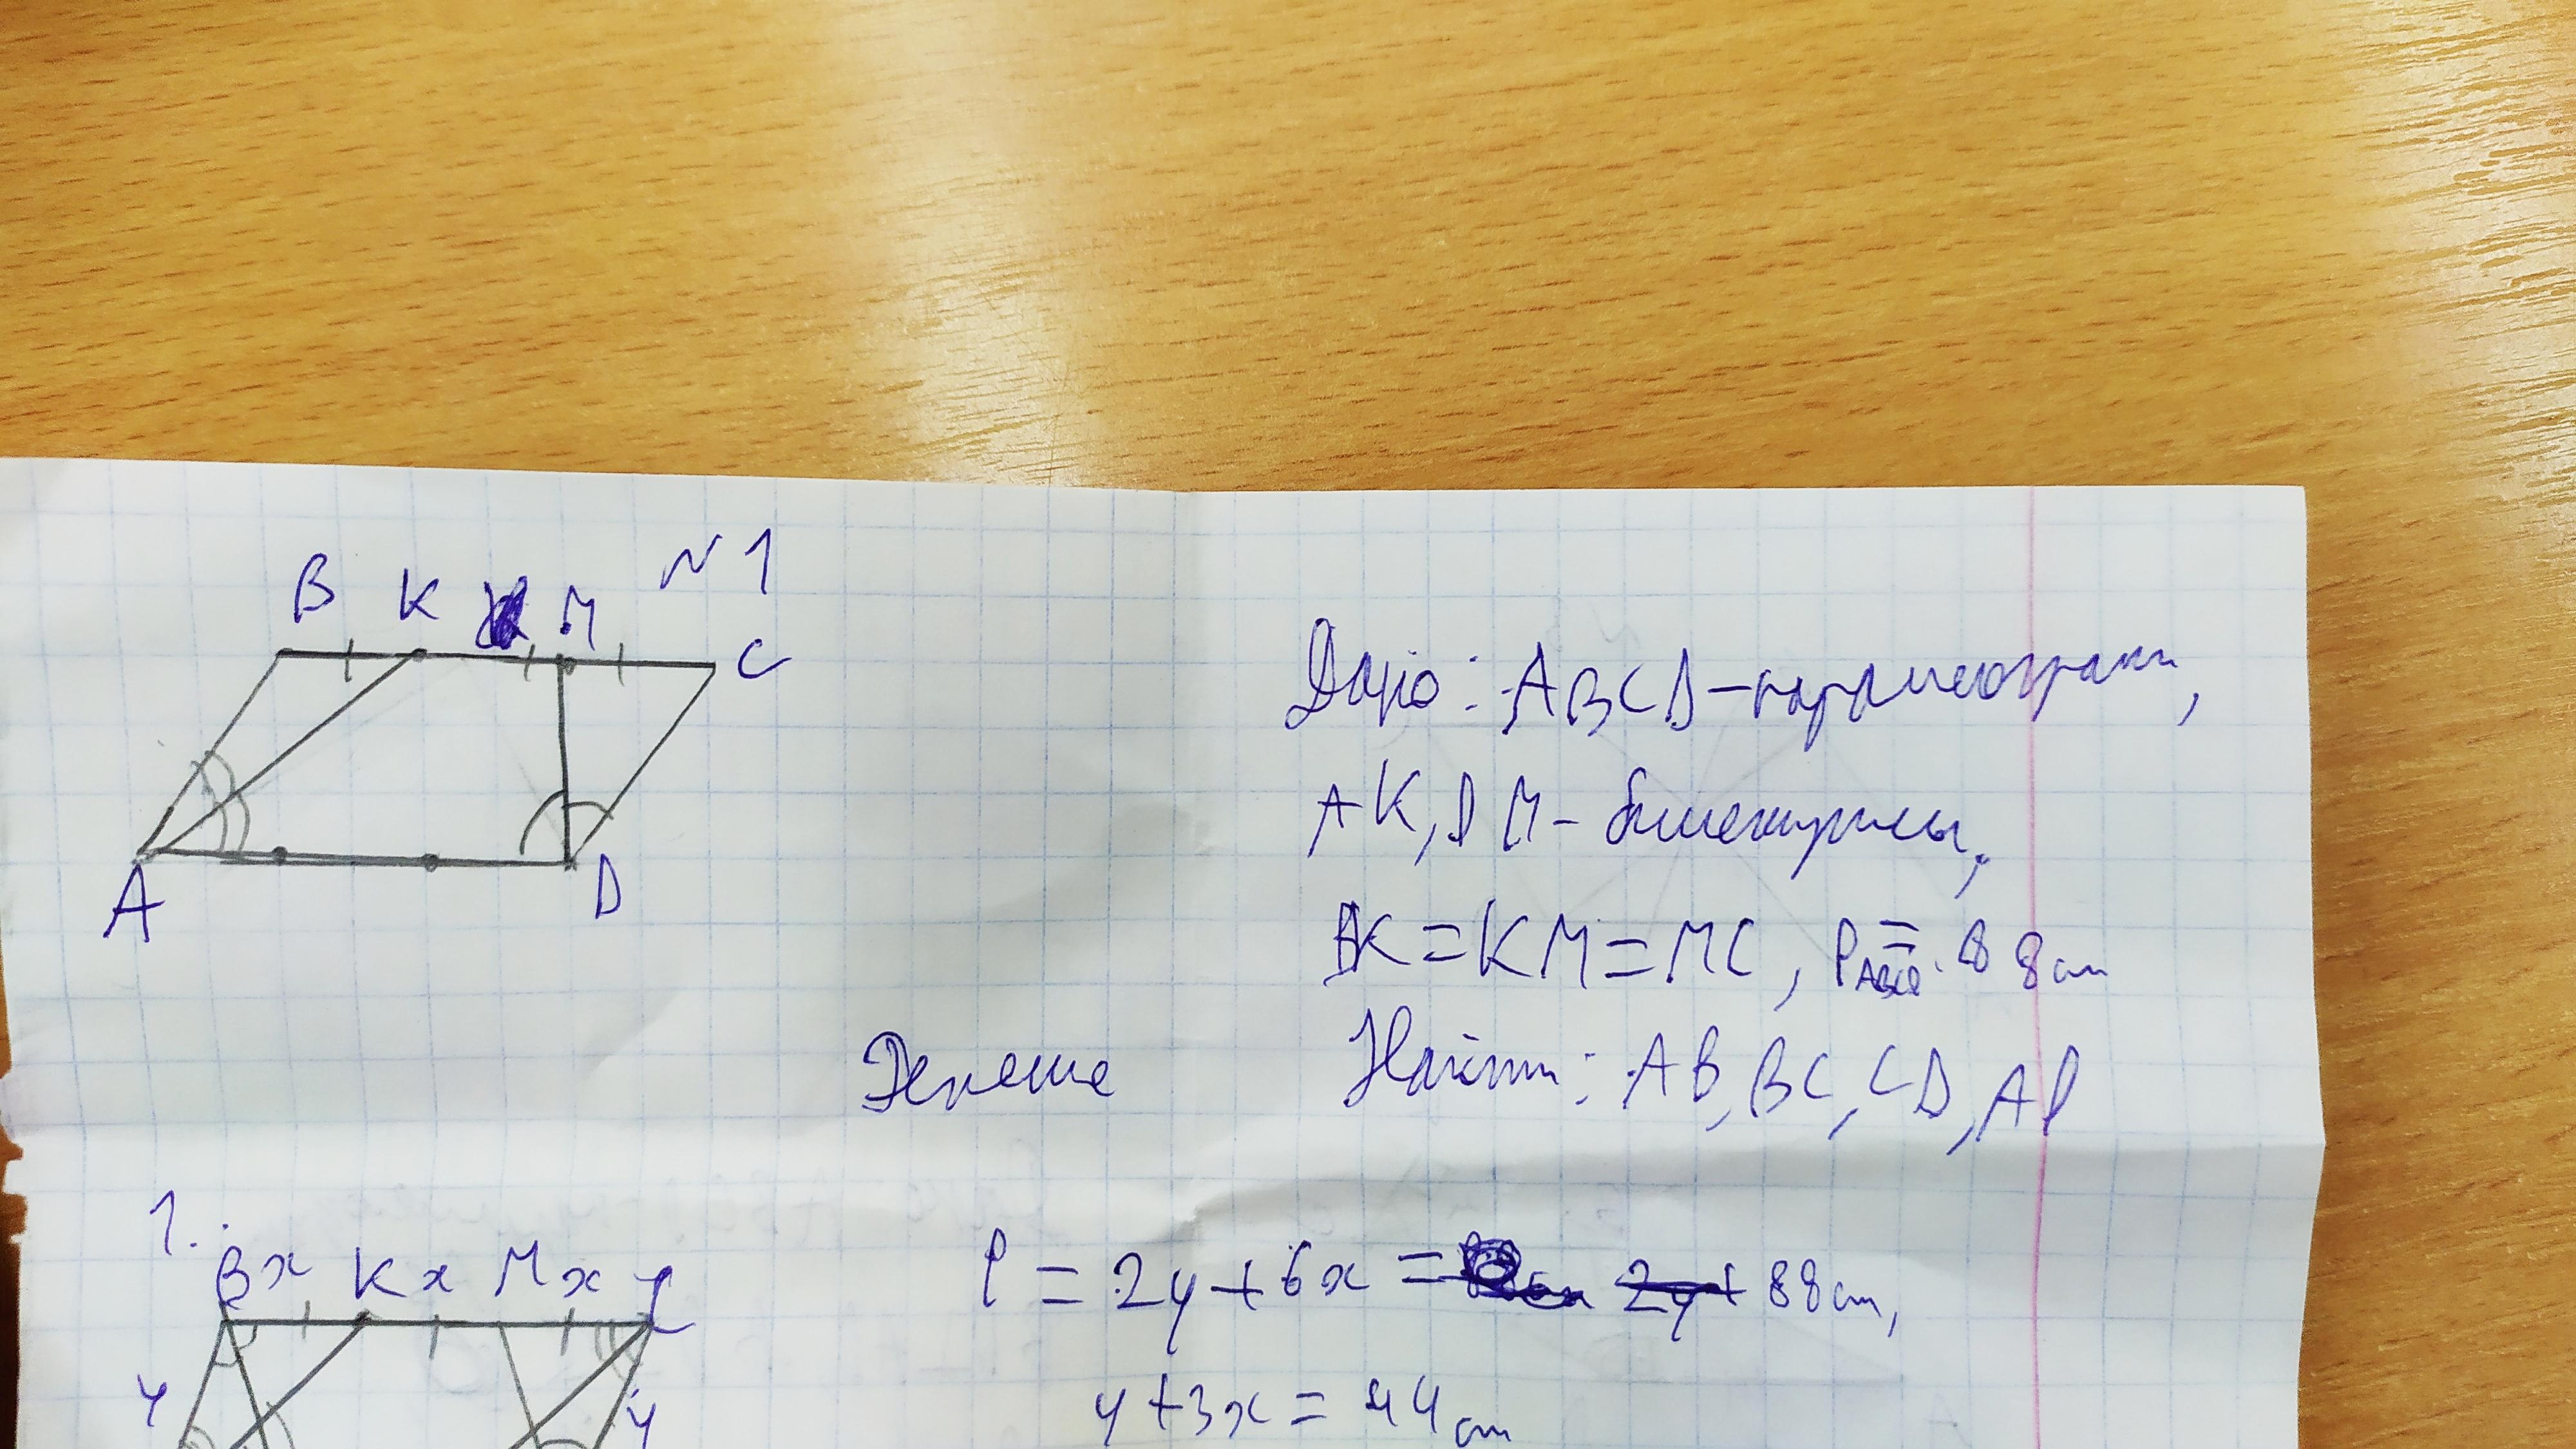 N1
B K M C
A D
Дано: ABCD – параллелограмм,
AK, DM – биссектрисы,
BK = KM = MC, P ABCD = 88 см
Найти: AB, BC, CD, AD
Решение
1.
B x K x M x C
P = 2y + 6x = 88 см,
y y
y + 3x = 44 см